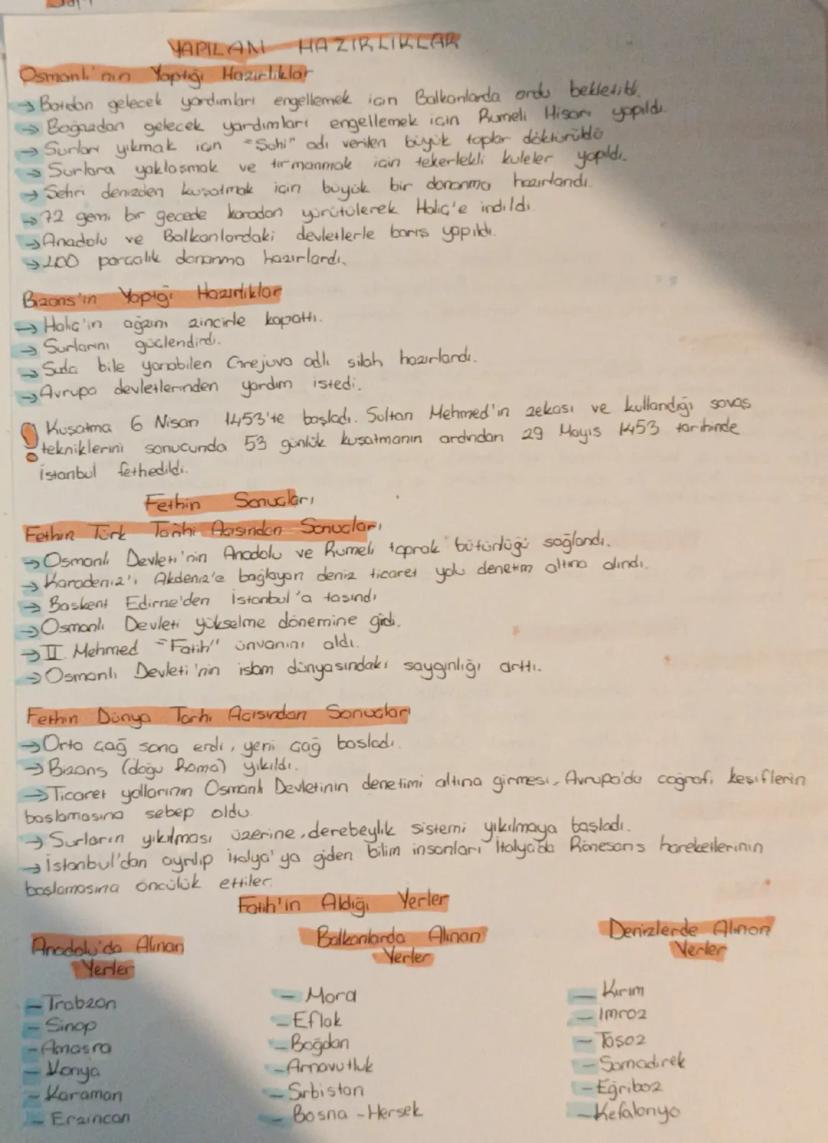 YAPILAN HAZIRLIKLAR
Osmanlı'nın Yaptığı Hazırlıklar
→ Batıdan gelecek yardımları engellemek için Balkanlarda ordu bekletildi.
→ Boğazdan gelecek yardımları engellemek için Rumeli Hisarı yapıldı.
→ Surları yıkmak için "Şahi" adı verilen büyük toplar döktürüldü
→ Surlara yaklaşmak ve tırmanmak için tekerlekli kuleler yapıldı.
→ Şehri denizden kuşatmak için büyük bir donanma hazırlandı.
→ 72 gemi bir gecede karadan yürütülerek Haliç'e indildi.
→ Anadolu ve Balkanlardaki devletlerle barış yapıldı.
→ 400 parçalık donanma hazırlardı.
Bizans'ın Yaptığı Hazırlıklar
→ Haliç'in ağzını zincirle kapattı.
→ Surlarını güçlendirdi.
→ Suda bile yanabilen Grejuva adlı silah hazırlandı.
→ Avrupa devletlerinden yardım istedi.
! Kuşatma 6 Nisan 1453'te başladı. Sultan Mehmed'in zekası ve kullandığı savaş
tekniklerini sonucunda 53 günlük kuşatmanın ardından 29 Mayıs 1453 tarihinde
İstanbul fethedildi.
Fethin Sonuçları
Fethin Türk Tarihi Açısından Sonuçları
→ Osmanlı Devleti'nin Anadolu ve Rumeli toprak bütünlüğü sağlandı.
→ Karadeniz'i Akdeniz'e bağlayan deniz ticaret yolu denetim altına alındı.
→ Başkent Edirne'den İstanbul'a taşındı
→ Osmanlı Devleti yükselme dönemine girdi.
→ II. Mehmed "Fatih" ünvanını aldı.
→ Osmanlı Devleti'nin islam dünyasındaki saygınlığı arttı.
Fethin Dünya Tarihi Açısından Sonuçları
→ Orta çağ sona erdi, yeni çağ başladı.
→ Bizans (doğu Roma) yıkıldı.
→ Ticaret yollarının Osmanlı Devletinin denetimi altına girmesi, Avrupa'da coğrafi keşiflerin
başlamasına sebep oldu.
→ Surların yıkılması üzerine, derebeylik sistemi yıkılmaya başladı.
→ İstanbul'dan ayrılıp İtalya'ya giden bilim insanları İtalya'da Rönesans hareketlerinin
başlamasına öncülük ettiler.
Fatih'in Aldığı Yerler
Anadolu'da Alınan
Yerler
- Trabzon
- Sinop
- Amasra
- Konya
- Karaman
- Erzincan
Balkanlarda Alınan
Yerler
- Mora
- Eflak
- Boğdan
- Arnavutluk
- Sırbistan
- Bosna-Hersek
Denizlerde Alınan
Yerler
- Kırım
- Imroz
- Taşoz
- Semadirek
- Eğriboz
- Kefalonya